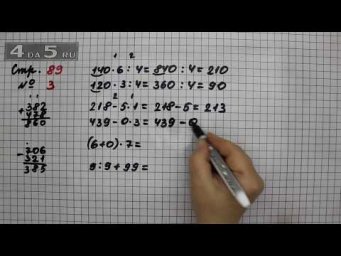 4 DA 5 .RU
Стр. 89
№ 3
1 2
140 · 6 : 4 = 840 : 4 = 210
120 · 3 : 4 = 360 : 4 = 90
2 1
218 - 5 · 1 = 218 - 5 = 213
439 - 0 · 3 = 439 - 0
(6+0) · 7 =
0 : 9 + 99 =
+ 382
478
860
- 706
321
385